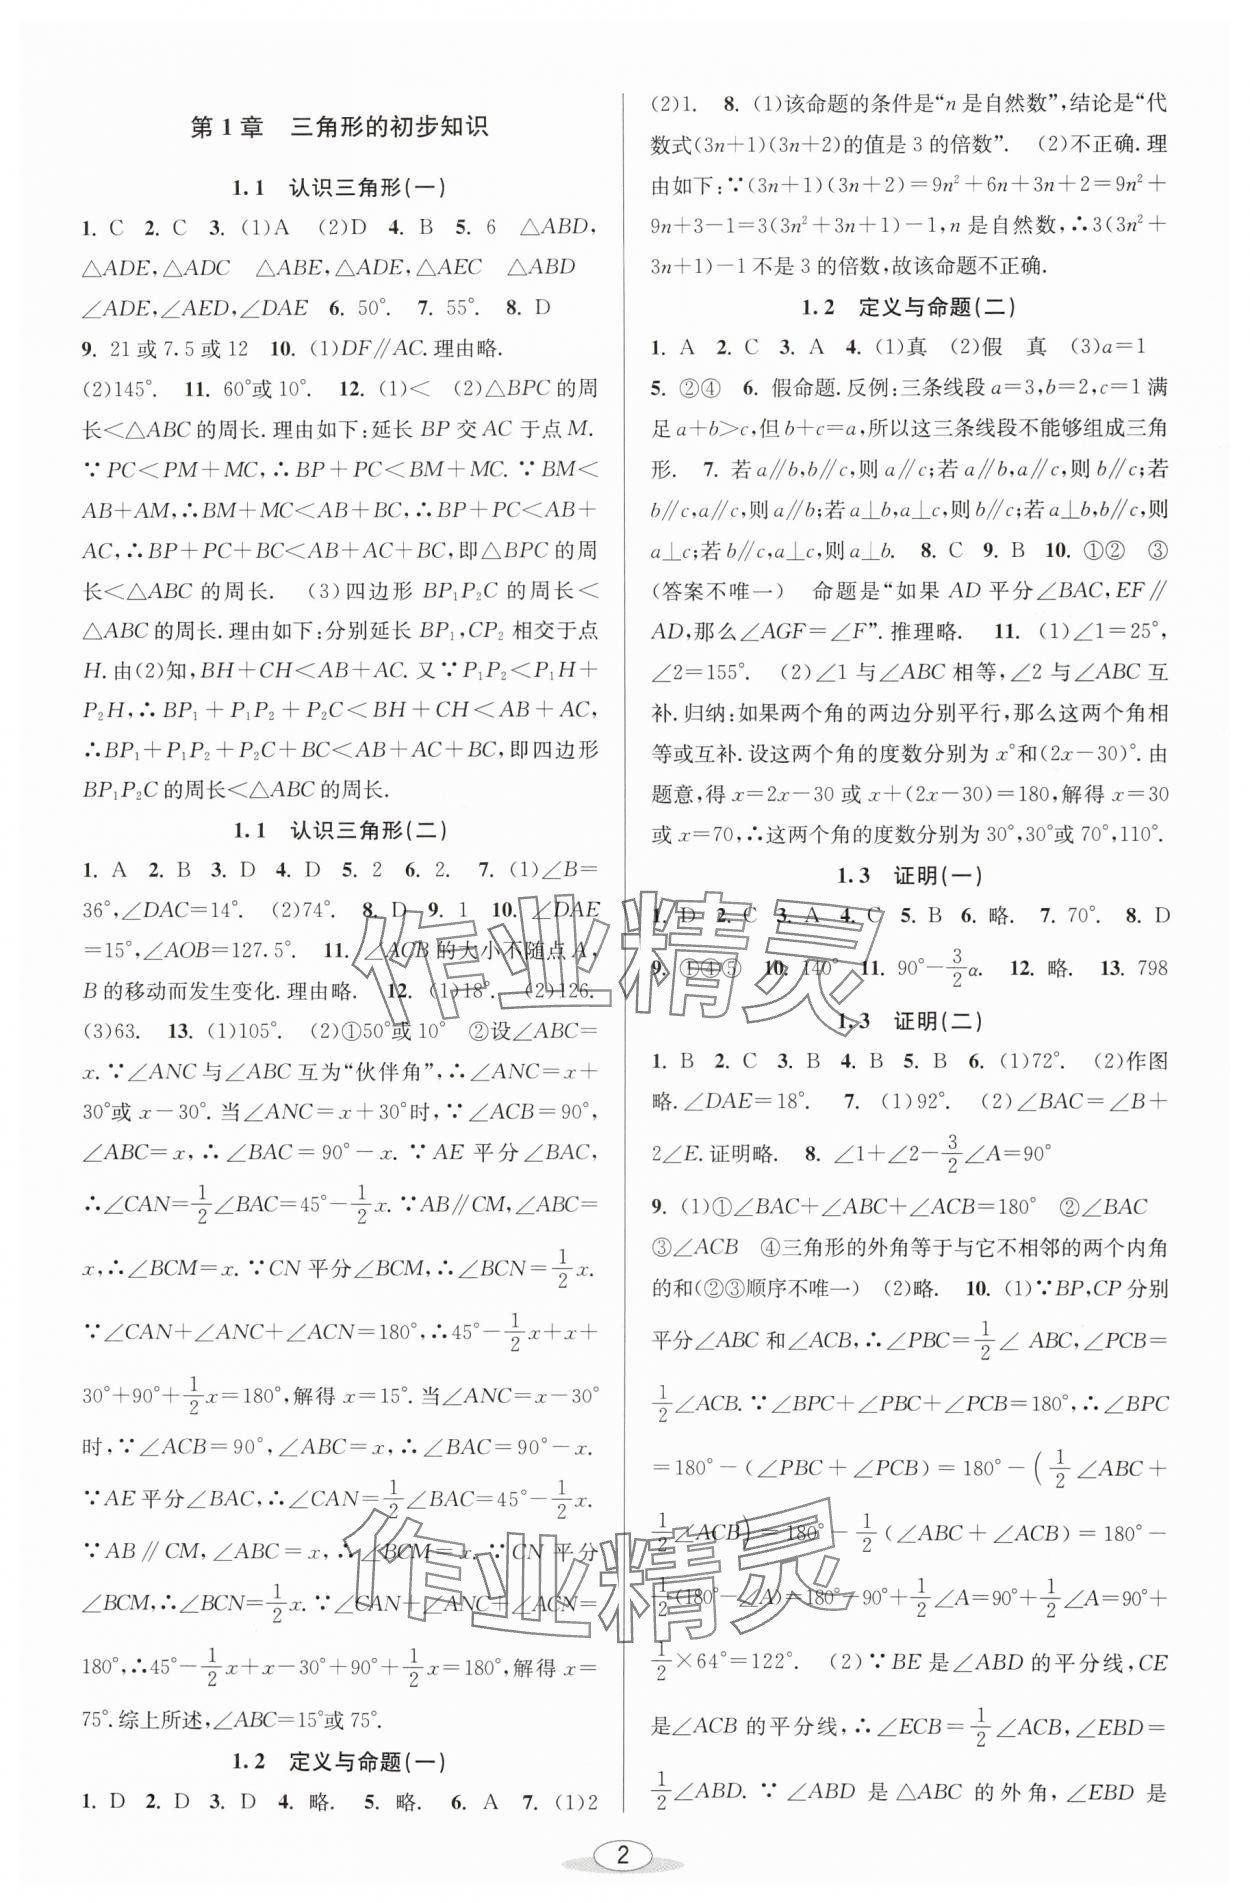 第 1 章　三角形的初步知识
1.1　认识三角形(一)
1. C　2. C　3. (1)A　(2)D　4. B　5. 6　△ABD,
△ADE,△ADC　△ABE,△ADE,△AEC　△ABD
∠ADE,∠AED,∠DAE　6. 50°.　7. 55°.　8. D
9. 21 或 7.5 或 12　10. (1)DF∥AC.理由略.
(2)145°.　11. 60°或 10°.　12. (1)<　(2)△BPC 的周
长<△ABC 的周长.理由如下:延长 BP 交 AC 于点 M.
∵PC<PM+MC,∴BP+PC<BM+MC.∵BM<
AB+AM,∴BM+MC<AB+BC,∴BP+PC<AB+
AC,∴BP+PC+BC<AB+AC+BC,即△BPC 的周
长<△ABC 的周长.　(3)四边形 BP₁P₂C 的周长<
△ABC 的周长.理由如下:分别延长 BP₁,CP₂ 相交于点
H.由(2)知,BH+CH<AB+AC.又∵P₁P₂<P₁H+
P₂H,∴BP₁+P₁P₂+P₂C<BH+CH<AB+AC,
∴BP₁+P₁P₂+P₂C+BC<AB+AC+BC,即四边形
BP₁P₂C 的周长<△ABC 的周长.
1.1　认识三角形(二)
1. A　2. B　3. D　4. D　5. 2　6. 2.　7. (1)∠B=
36°,∠DAC=14°.　(2)74°.　8. D　9. 1　10. ∠DAE
=15°,∠AOB=127.5°.　11. ∠ACB 的大小不随点 A,
B 的移动而发生变化.理由略.　12. (1)18°.　(2)126.
(3)63.　13. (1)105°.　(2)①50°或 10°　②设∠ABC=
x.∵∠ANC 与∠ABC 互为“伙伴角”,∴∠ANC=x+
30°或 x-30°.当∠ANC=x+30°时,∵∠ACB=90°,
∠ABC=x,∴∠BAC=90°-x.∵AE 平分∠BAC,
∴∠CAN=1/2∠BAC=45°-1/2x.∵AB∥CM,∠ABC=
x,∴∠BCM=x.∵CN 平分∠BCM,∴∠BCN=1/2x.
∵∠CAN+∠ANC+∠ACN=180°,∴45°-1/2x+x+
30°+90°+1/2x=180°,解得 x=15°.当∠ANC=x-30°
时,∵∠ACB=90°,∠ABC=x,∴∠BAC=90°-x.
∵AE 平分∠BAC,∴∠CAN=1/2∠BAC=45°-1/2x.
∵AB∥CM,∠ABC=x,∴∠BCM=x.∵CN 平分
∠BCM,∴∠BCN=1/2x.∵∠CAN+∠ANC+∠ACN=
180°,∴45°-1/2x+x-30°+90°+1/2x=180°,解得 x=
75°.综上所述,∠ABC=15°或 75°.
1.2　定义与命题(一)
1. D　2. D　3. D　4. 略.　5. 略.　6. A　7. (1)2
(2)1.　8. (1)该命题的条件是“n 是自然数”,结论是“代
数式(3n+1)(3n+2)的值是 3 的倍数”.　(2)不正确.理
由如下:∵(3n+1)(3n+2)=9n²+6n+3n+2=9n²+
9n+3-1=3(3n²+3n+1)-1,n 是自然数,∴3(3n²+
3n+1)-1 不是 3 的倍数,故该命题不正确.
1.2　定义与命题(二)
1. A　2. C　3. A　4. (1)真　(2)假　真　(3)a=1
5. ②④　6. 假命题.反例:三条线段 a=3,b=2,c=1 满
足 a+b>c,但 b+c=a,所以这三条线段不能够组成三角
形.　7. 若 a∥b,b∥c,则 a∥c;若 a∥b,a∥c,则 b∥c;若
b∥c,a∥c,则 a∥b;若 a⊥b,a⊥c,则 b∥c;若 a⊥b,b∥c,则
a⊥c;若 b∥c,a⊥c,则 a⊥b.　8. C　9. B　10. ①②　③
(答案不唯一)　命题是“如果 AD 平分∠BAC,EF∥
AD,那么∠AGF=∠F”.推理略.　11. (1)∠1=25°,
∠2=155°.　(2)∠1 与∠ABC 相等,∠2 与∠ABC 互
补.归纳:如果两个角的两边分别平行,那么这两个角相
等或互补.设这两个角的度数分别为 x°和(2x-30)°.由
题意,得 x=2x-30 或 x+(2x-30)=180,解得 x=30
或 x=70,∴这两个角的度数分别为 30°,30°或 70°,110°.
1.3　证明(一)
1. D　2. C　3. A　4. C　5. B　6. 略.　7. 70°.　8. D
9. ①④⑤　10. 140°　11. 90°-3/2α.　12. 略.　13. 798
1.3　证明(二)
1. B　2. C　3. B　4. B　5. B　6. (1)72°.　(2)作图
略.∠DAE=18°.　7. (1)92°.　(2)∠BAC=∠B+
2∠E.证明略.　8. ∠1+∠2-3/2∠A=90°
9. (1)①∠BAC+∠ABC+∠ACB=180°　②∠BAC
③∠ACB　④三角形的外角等于与它不相邻的两个内角
的和(②③顺序不唯一)　(2)略.　10. (1)∵BP,CP 分别
平分∠ABC 和∠ACB,∴∠PBC=1/2∠ABC,∠PCB=
1/2∠ACB.∵∠BPC+∠PBC+∠PCB=180°,∴∠BPC
=180°-(∠PBC+∠PCB)=180°-(1/2∠ABC+
1/2∠ACB)=180°-1/2(∠ABC+∠ACB)=180°-
1/2(180°-∠A)=180°-90°+1/2∠A=90°+1/2∠A=90°+
1/2×64°=122°.　(2)∵BE 是∠ABD 的平分线,CE
是∠ACB 的平分线,∴∠ECB=1/2∠ACB,∠EBD=
1/2∠ABD.∵∠ABD 是△ABC 的外角,∠EBD 是
2
作业精灵
作业精灵